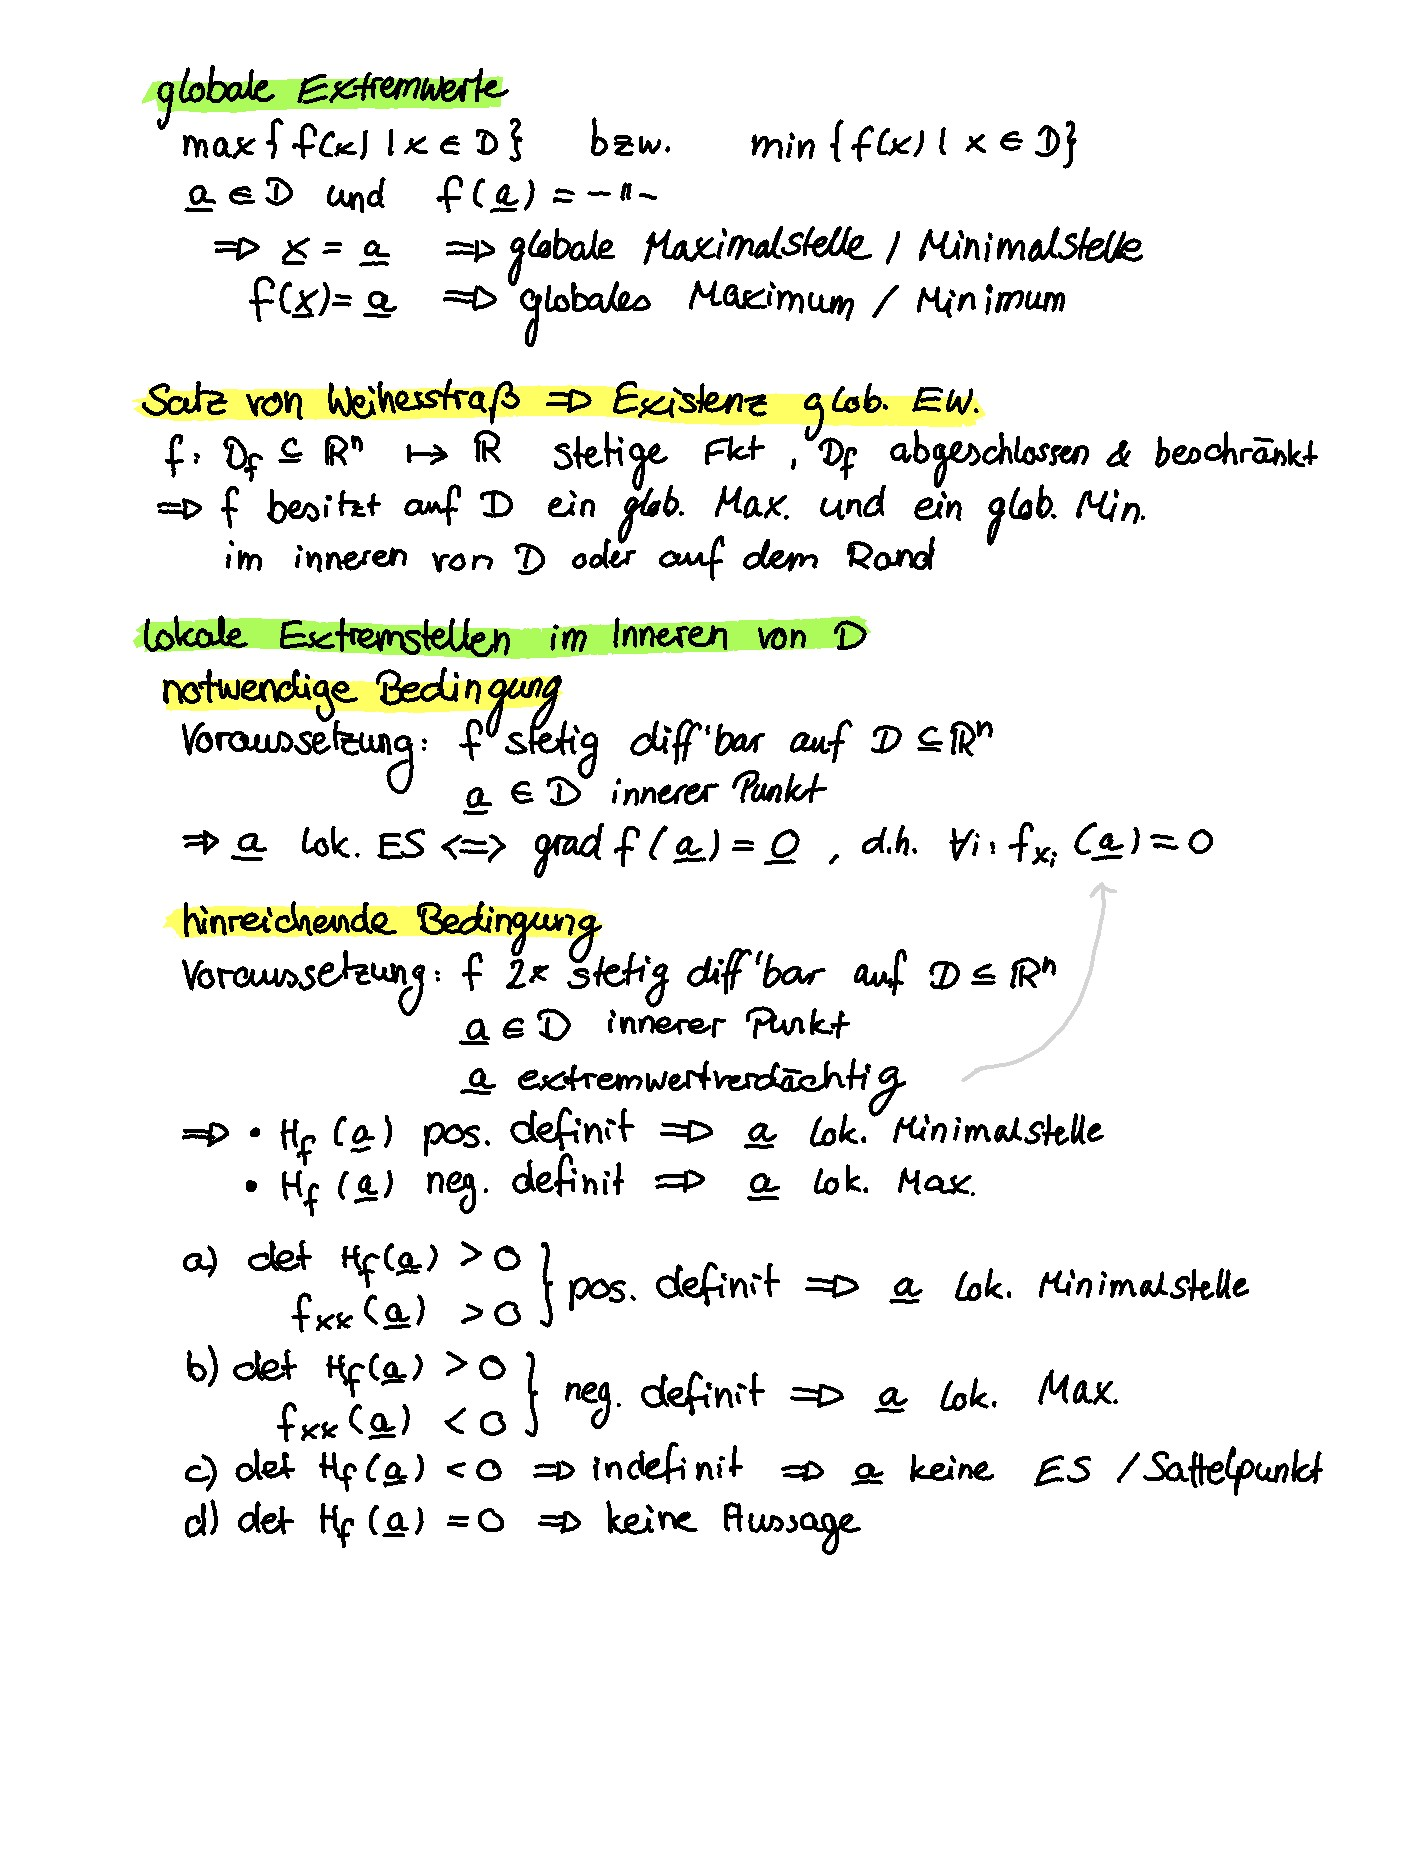 globale Extremwerte
max{f(x) | x ∈ D} bzw. min{f(x) | x ∈ D}
a ∈ D und f(a) = -"-
⇒ x = a ⇒ globale Maximalstelle / Minimalstelle
f(x) = a ⇒ globales Maximum / Minimum
Satz von Weihesstraß ⇒ Existenz glob. EW.
f: D_f ⊆ ℝⁿ ↦ ℝ stetige Fkt, D_f abgeschlossen & beschränkt
⇒ f besitzt auf D ein glob. Max. und ein glob. Min.
im inneren von D oder auf dem Rand
lokale Extremstellen im Inneren von D
notwendige Bedingung
Voraussetzung: f stetig diff'bar auf D ⊆ ℝⁿ
a ∈ D innerer Punkt
⇒ a lok. ES <=> grad f(a) = 0, d.h. ∀i: f_xi (a) = 0
hinreichende Bedingung
Voraussetzung: f 2x stetig diff'bar auf D ⊆ ℝⁿ
a ∈ D innerer Punkt
a extremwertverdächtig
⇒ • H_f (a) pos. definit ⇒ a lok. Minimalstelle
• H_f (a) neg. definit ⇒ a lok. Max.
a) det H_f(a) > 0
f_xx(a) > 0 } pos. definit ⇒ a lok. Minimalstelle
b) det H_f(a) > 0
f_xx(a) < 0 } neg. definit ⇒ a lok. Max.
c) det H_f(a) < 0 ⇒ indefinit ⇒ a keine ES / Sattelpunkt
d) det H_f(a) = 0 ⇒ keine Aussage